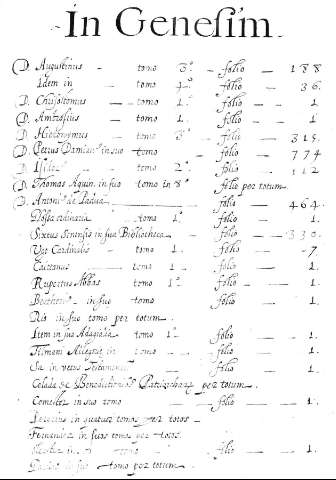 In Genesim.
D. Augustinus — tomo 3º. folio — 188
Idem in — tomo 4º. folio — 36.
D. Chrisostomus — tomo 1. folio — 1.
D. Ambrosius — tomo 1. folio — 1.
D. Hieronymus — tomo 3º. folio — 315.
D. Petrus Damianº in suo tomo — folio — 774
D. — tomo 2º. folio — 112
D. Thomas Aquin. in suo tomo in 8º folio per totum.
D. Antoniº de Padua — folio — 464.
Glossa ordinaria — tomo 1º. folio — 1.
Sixtus Senensis in sua Bibliotheca — folio — 330.
Cardinalis — tomo 1. folio — 7.
Caietanus — tomo 1. folio — 1.
Rupertus Abbas tomo 1º. folio — 1.
in suo tomo folio — 1.
in suo tomo per totum.
Item in sua tomo 1º. folio — 1.
in tomo folio — 1.
Sa in vetus testamentum folio — 1.
Celada de Benedictionibº Patriarcharz per totum.
in suo tomo folio — 1.
in quatuor tomos per totos —
Fernandez in suos tomos per totos.
tomo folio — 1.
in suo tomo per totum.